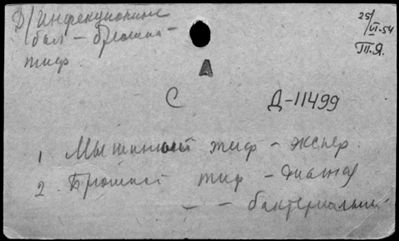 Д/Инфекционные
бол – брюшной
тиф.
25/VI-54
П.Я.
А
С
Д-11499
1 Мышиный тиф – экспер
2. Брюшной тиф – диагноз
– – бактериальный